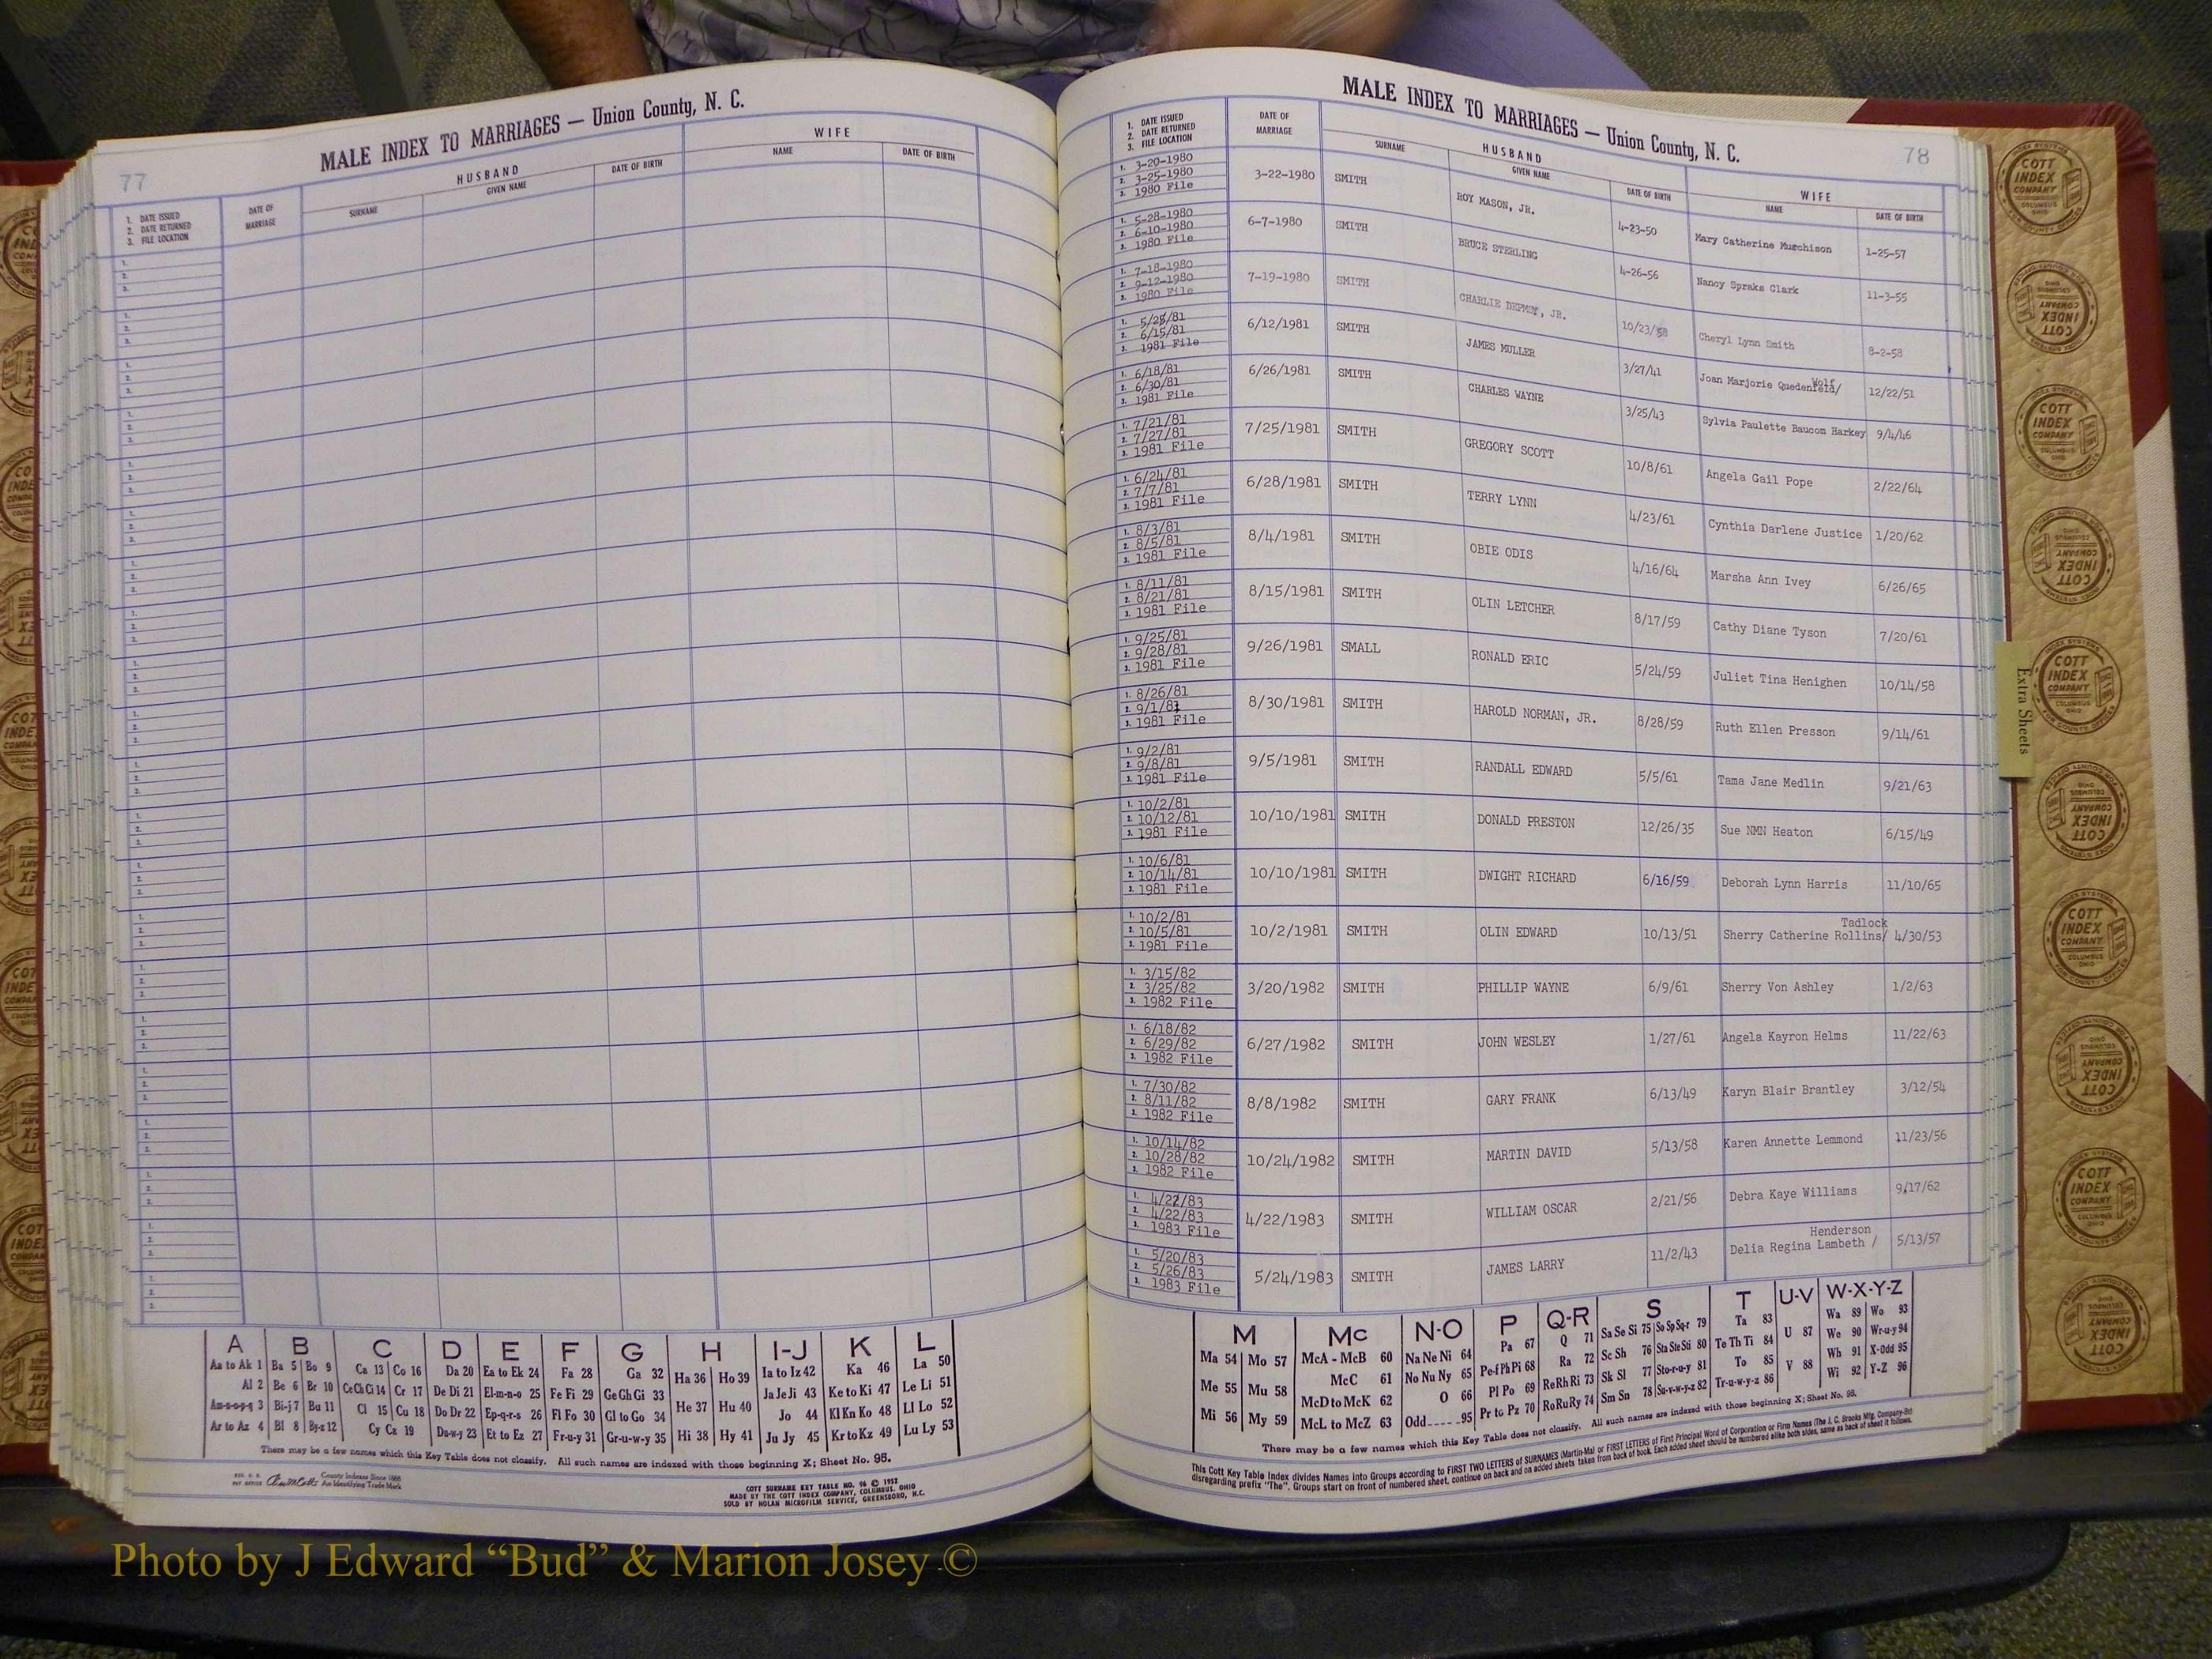 MALE INDEX TO MARRIAGES — Union County, N. C.
77
HUSBAND
WIFE
1. DATE ISSUED
2. DATE RETURNED
3. FILE LOCATION
DATE OF MARRIAGE
SURNAME
GIVEN NAME
DATE OF BIRTH
NAME
DATE OF BIRTH
A B C D E F G H I-J K L
Aa to Ak 1 Ba 5 Bo 9 Ca 13 Co 16 Da 20 Ea to Ek 24 Fa 28 Ga 32 Ha 36 Ho 39 Ia to Iz 42 Ka 46 La 50
Al 2 Be 6 Br 10 Ce Ch Ci 14 Cr 17 De Di 21 El-m-n-o 25 Fe Fi 29 Ge Gh Gi 33 He 37 Hu 40 Ja Je Ji 43 Ke to Ki 47 Le Li 51
Am-n-o-p-q 3 Bi-j 7 Bu 11 Cl 15 Cu 18 Do Dr 22 Ep-q-r-s 26 Fl Fo 30 Gl to Go 34 Hi 38 Hy 41 Jo 44 Kl Kn Ko 48 Ll Lo 52
Ar to Az 4 Bl 8 By-z 12 Cy Cz 19 Du-w-y 23 Et to Ez 27 Fr-u-y 31 Gr-u-w-y 35 Ju Jy 45 Kr to Kz 49 Lu Ly 53
There may be a few names which this Key Table does not classify. All such names are indexed with those beginning X; Sheet No. 95.
County Indexes Since 1888
An Identifying Trade Mark
COTT SURNAME KEY TABLE NO. 96 © 1952
MADE BY THE COTT INDEX COMPANY, COLUMBUS, OHIO
SOLD BY NOLAN MICROFILM SERVICE, GREENSBORO, N.C.
MALE INDEX TO MARRIAGES — Union County, N. C.
78
1. DATE ISSUED
2. DATE RETURNED
3. FILE LOCATION
DATE OF MARRIAGE
HUSBAND
SURNAME
GIVEN NAME
DATE OF BIRTH
WIFE
NAME
DATE OF BIRTH
1. 3-20-1980
2. 3-25-1980
3. 1980 File
3-22-1980 SMITH ROY MASON, JR. 4-23-50 Mary Catherine Murchison 1-25-57
1. 5-28-1980
2. 6-10-1980
3. 1980 File
6-7-1980 SMITH BRUCE STERLING 4-26-56 Nancy Spraks Clark 11-3-55
1. 7-18-1980
2. 9-12-1980
3. 1980 File
7-19-1980 SMITH CHARLIE , JR. 10/23/58 Cheryl Lynn Smith 8-2-58
1. 5/28/81
2. 6/15/81
3. 1981 File
6/12/1981 SMITH JAMES MULLER 3/27/41 Joan Marjorie Quedenfeld/ Wolf 12/22/51
1. 6/18/81
2. 6/30/81
3. 1981 File
6/26/1981 SMITH CHARLES WAYNE 3/25/43 Sylvia Paulette Baucom Harkey 9/4/46
1. 7/21/81
2. 7/27/81
3. 1981 File
7/25/1981 SMITH GREGORY SCOTT 10/8/61 Angela Gail Pope 2/22/64
1. 6/24/81
2. 7/7/81
3. 1981 File
6/28/1981 SMITH TERRY LYNN 4/23/61 Cynthia Darlene Justice 1/20/62
1. 8/3/81
2. 8/5/81
3. 1981 File
8/4/1981 SMITH OBIE ODIS 4/16/64 Marsha Ann Ivey 6/26/65
1. 8/11/81
2. 8/21/81
3. 1981 File
8/15/1981 SMITH OLIN LETCHER 8/17/59 Cathy Diane Tyson 7/20/61
1. 9/25/81
2. 9/28/81
3. 1981 File
9/26/1981 SMALL RONALD ERIC 5/24/59 Juliet Tina Henighen 10/14/58
1. 8/26/81
2. 9/1/81
3. 1981 File
8/30/1981 SMITH HAROLD NORMAN, JR. 8/28/59 Ruth Ellen Presson 9/14/61
1. 9/2/81
2. 9/8/81
3. 1981 File
9/5/1981 SMITH RANDALL EDWARD 5/5/61 Tama Jane Medlin 9/21/63
1. 10/2/81
2. 10/12/81
3. 1981 File
10/10/1981 SMITH DONALD PRESTON 12/26/35 Sue NMN Heaton 6/15/49
1. 10/6/81
2. 10/14/81
3. 1981 File
10/10/1981 SMITH DWIGHT RICHARD 6/16/59 Deborah Lynn Harris 11/10/65
1. 10/2/81
2. 10/5/81
3. 1981 File
Tadlock
10/2/1981 SMITH OLIN EDWARD 10/13/51 Sherry Catherine Rollins/ 4/30/53
1. 3/15/82
2. 3/25/82
3. 1982 File
3/20/1982 SMITH PHILLIP WAYNE 6/9/61 Sherry Von Ashley 1/2/63
1. 6/18/82
2. 6/29/82
3. 1982 File
6/27/1982 SMITH JOHN WESLEY 1/27/61 Angela Kayron Helms 11/22/63
1. 7/30/82
2. 8/11/82
3. 1982 File
8/8/1982 SMITH GARY FRANK 6/13/49 Karyn Blair Brantley 3/12/54
1. 10/14/82
2. 10/28/82
3. 1982 File
10/24/1982 SMITH MARTIN DAVID 5/13/58 Karen Annette Lemmond 11/23/56
1. 4/22/83
2. 4/22/83
3. 1983 File
4/22/1983 SMITH WILLIAM OSCAR 2/21/56 Debra Kaye Williams 9/17/62
1. 5/20/83
2. 5/26/83
3. 1983 File
Henderson
5/24/1983 SMITH JAMES LARRY 11/2/43 Delia Regina Lambeth / 5/13/57
M Mc N-O P Q-R S T U-V W-X-Y-Z
Ma 54 Mo 57 McA - McB 60 Na Ne Ni 64 Pa 67 Q 71 Sa Se Si 75 So Sp Sq-r 79 Ta 83 U 87 Wa 89 Wo 93
Me 55 Mu 58 McC 61 No Nu Ny 65 Pe-f Ph Pi 68 Ra 72 Sc Sh 76 Sta Ste Sti 80 Te Th Ti 84 V 88 We 90 Wr-u-y 94
Mi 56 My 59 McD to McK 62 O 66 Pl Po 69 Re Rh Ri 73 Sk Sl 77 Sto-r-u-y 81 To 85 Wh 91 X-Odd 95
McL to McZ 63 Odd 95 Pr to Pz 70 Ro Ru Ry 74 Sm Sn 78 Su-v-w-y-z 82 Tr-u-w-y-z 86 Wi 92 Y-Z 96
There may be a few names which this Key Table does not classify. All such names are indexed with those beginning X; Sheet No. 95.
This Cott Key Table Index divides Names into Groups according to FIRST TWO LETTERS of SURNAMES (Martin-Ma) or FIRST LETTERS of First Principal Word of Corporation or Firm Names (The J. C. Brooks Mfg. Company-Br)
disregarding prefix "The". Groups start on front of numbered sheet, continue on back and on added sheets taken from back of book. Each added sheet should be numbered alike both sides, same as back of sheet it follows.
Extra Sheets
COTT INDEX COMPANY COLUMBUS OHIO
Photo by J Edward “Bud” & Marion Josey ©